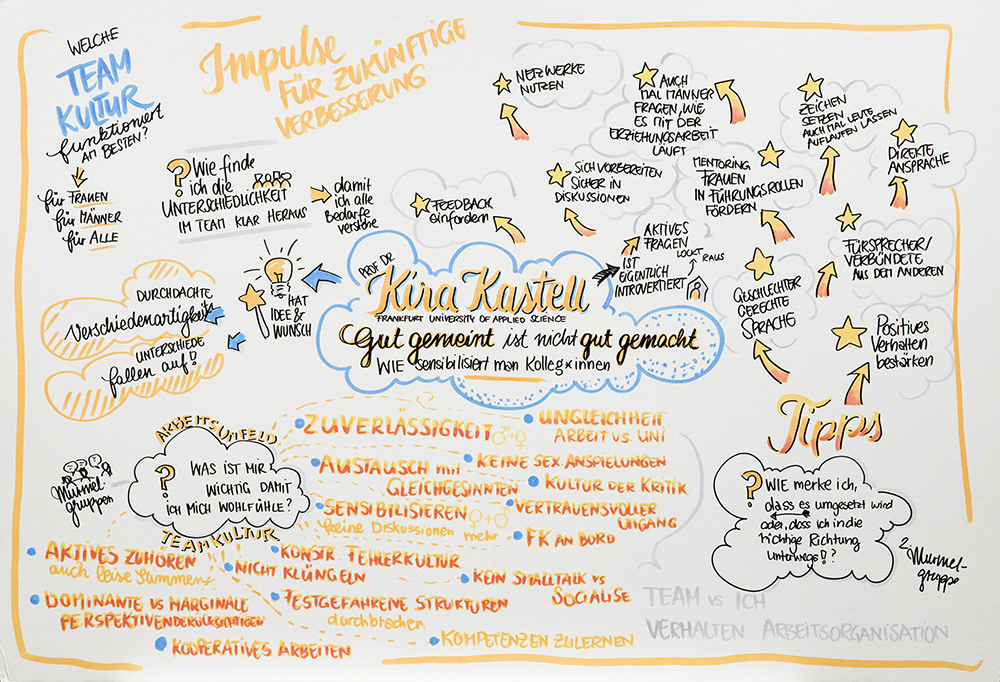 WELCHE
TEAM
KULTUR
funktioniert
AM BESTEN?
für FRAUEN
für MÄNNER
für ALLE
Impulse
FÜR ZUKÜNFTIGE
VERBESSERUNG
? Wie finde
ich die
UNTERSCHIEDLICHKEIT
IM TEAM KLAR HERAUS
damit
ich alle
Bedarfe
verstehe
HAT
IDEE &
WUNSCH
DURCHDACHTE
Verschiedenartigkeit
UNTERSCHIEDE
fallen auf!
PROF DR
Kira Kastell
FRANKFURT UNIVERSITY OF APPLIED SCIENCE
Gut gemeint ist nicht gut gemacht
WIE sensibilisiert man Kolleg*innen
AKTIVES
FRAGEN
LOCKT RAUS
IST
EIGENTLICH
INTROVERTIERT
FEEDBACK
einfordern
NETZWERKE
NUTZEN
SICH VORBEREITEN
SICHER IN
DISKUSSIONEN
AUCH
MAL MÄNNER
FRAGEN, WIE
ES MIT DER
ERZIEHUNGSARBEIT
LÄUFT
MENTORING
FRAUEN
IN FÜHRUNGSROLLEN
FÖRDERN
ZEICHEN
SETZEN
AUCH MAL LEUTE
AUFLAUFEN LASSEN
DIREKTE
ANSPRACHE
FÜRSPRECHER/
VERBÜNDETE
AUS DEM ANDEREN
GESCHLECHTER
GERECHTE
SPRACHE
Positives
Verhalten
bestärken
Tipps
? WIE merke ich,
dass es umgesetzt wird
oder, dass ich in die
richtige Richtung
unterwegs!?
2. Murmel-
gruppe
Murmel-
gruppen
ARBEITSUMFELD
? WAS IST MIR
WICHTIG DAMIT
ICH MICH WOHLFÜHLE?
TEAMKULTUR
• ZUVERLÄSSIGKEIT ♂+♀
• AUSTAUSCH mit
GLEICHGESINNTEN
• SENSIBILISIEREN ♀+♂
keine Diskussionen mehr
• UNGLEICHHEIT
ARBEIT VS. UNI
• KEINE SEX. ANSPIELUNGEN
• KULTUR DER KRITIK
• VERTRAUENSVOLLER
UMGANG
• FK AN BORD
• AKTIVES ZUHÖREN
auch leise Stimmen
• KONSTR. FEHLERKULTUR
• NICHT KLÜNGELN
• KEIN SMALLTALK VS
SOCIALISE
• DOMINANTE VS MARGINALE
PERSPEKTIVEN BERÜCKSICHTIGEN
• FESTGEFAHRENE STRUKTUREN
durchbrechen
• KOOPERATIVES ARBEITEN
• KOMPETENZEN ZU LERNEN
TEAM VS ICH
VERHALTEN ARBEITSORGANISATION